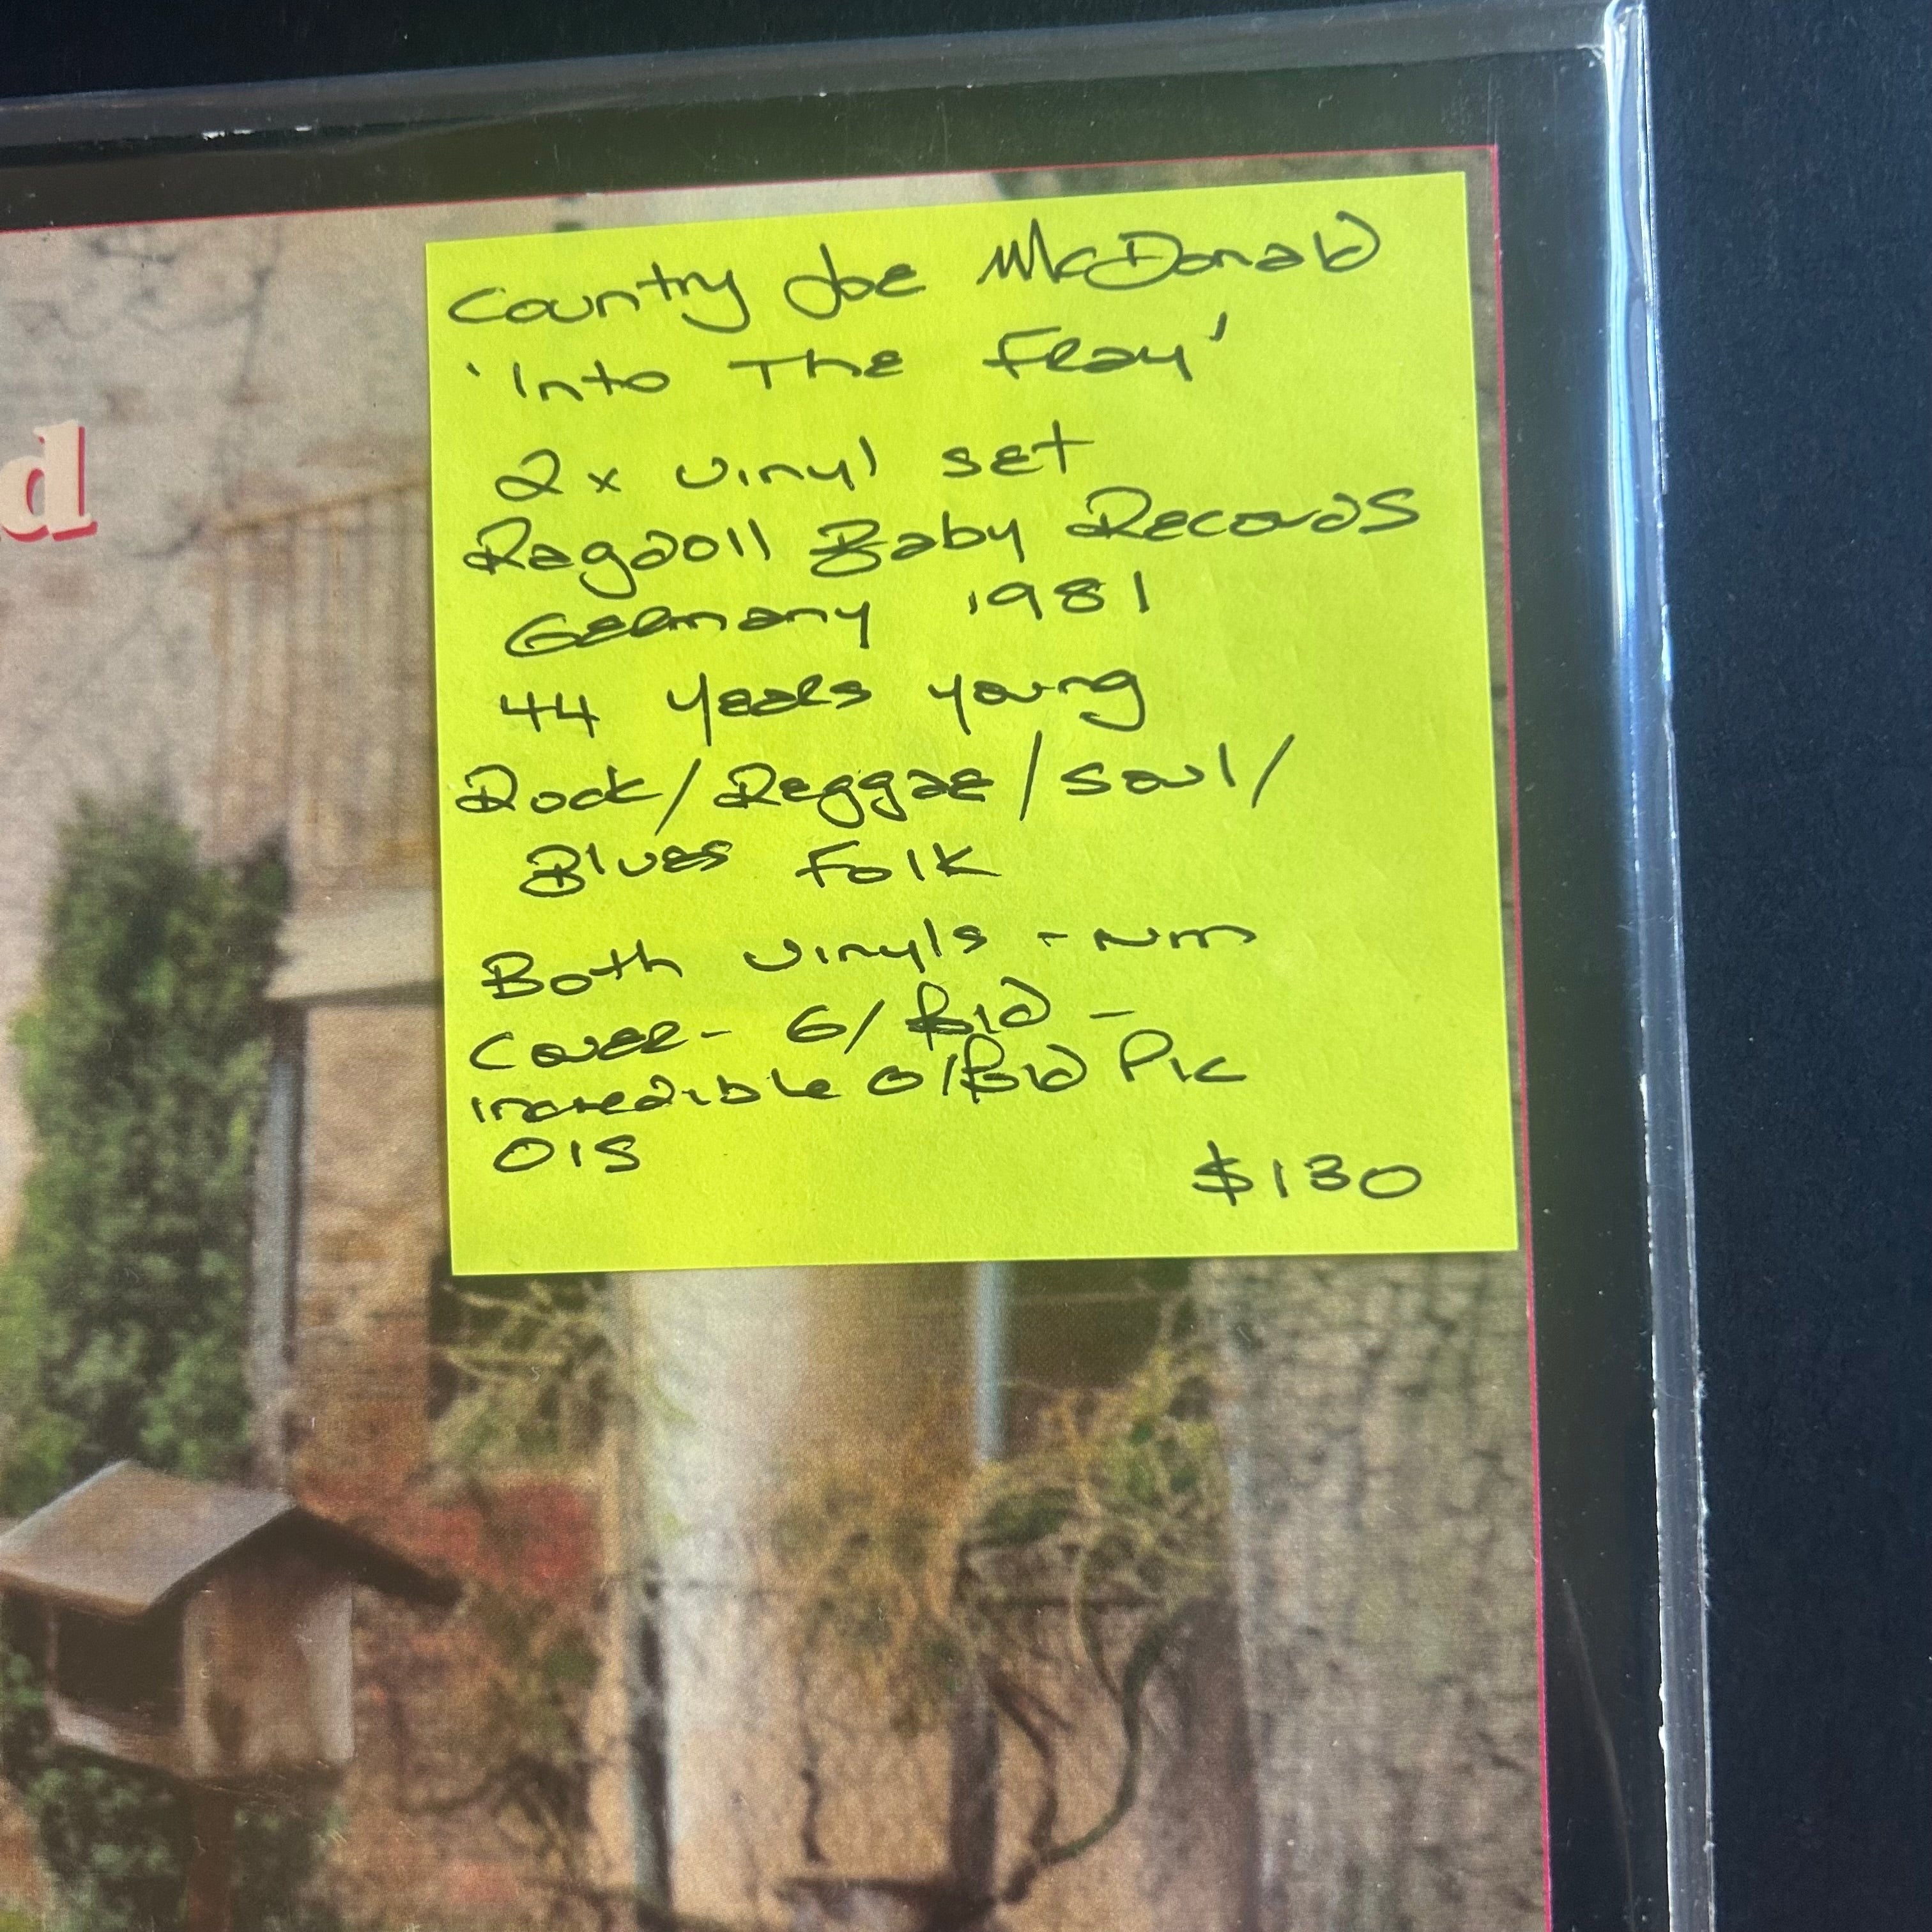 d
Country Joe McDonald
'Into The Fray'
2x vinyl set
Ragdoll Baby Records
Germany 1981
44 years young
Rock/Reggae/Soul/
Blues Folk
Both vinyls - NM
Cover - G/Fold -
incredible G/Fold Pic
OIS
$130